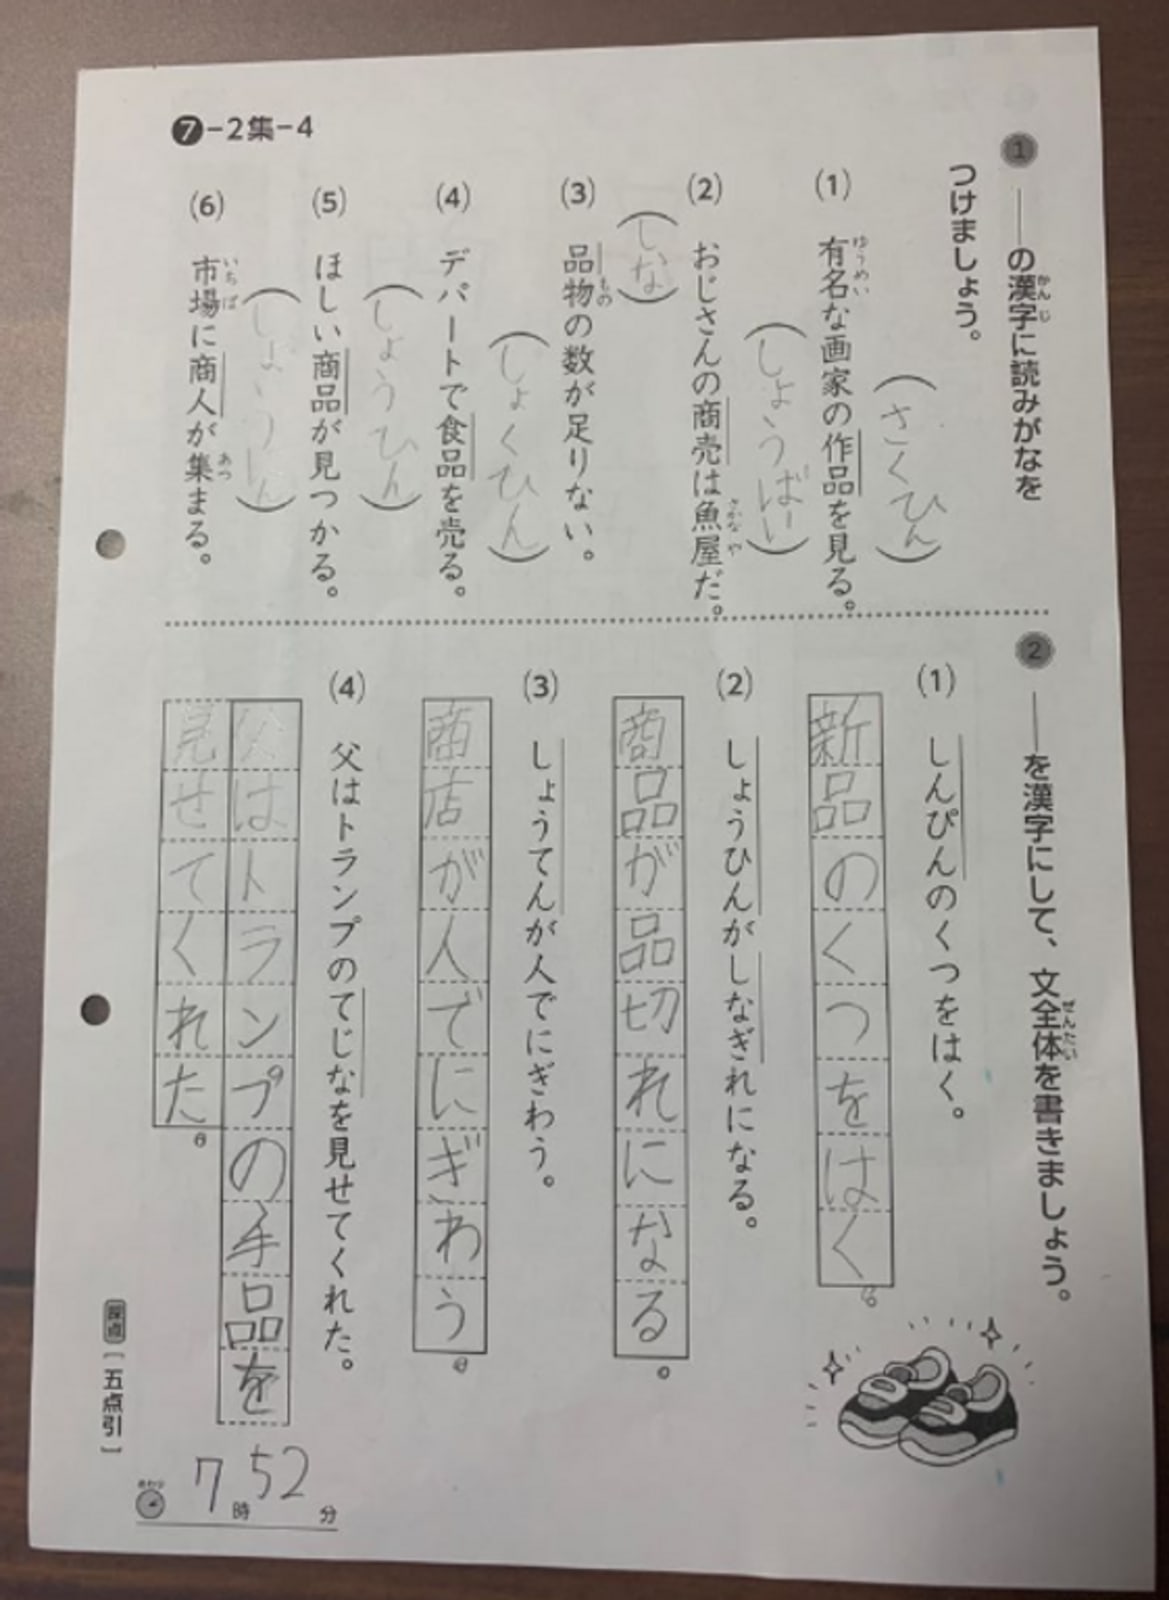 ❼-2集-4
1 ――の漢字に読みがなを
かんじ
つけましょう。
(1) 有名な画家の作品を見る。
ゆうめい
(さくひん)
(2) おじさんの商売は魚屋だ。
さかなや
(しょうばい)
(3) 品物の数が足りない。
もの
(しな)
(4) デパートで食品を売る。
(しょくひん)
(5) ほしい商品が見つかる。
(しょうひん)
(6) 市場に商人が集まる。
いちば
あつ
(しょうにん)
2 ――を漢字にして、文全体を書きましょう。
ぜんたい
(1) しんぴんのくつをはく。
新品のくつをはく。
(2) しょうひんがしなぎれになる。
商品が品切れになる。
(3) しょうてんが人でにぎわう。
商店が人でにぎわう。
(4) 父はトランプのてじなを見せてくれた。
父はトランプの手品を
見せてくれた。
採点[五点引]
おわり 7時52分